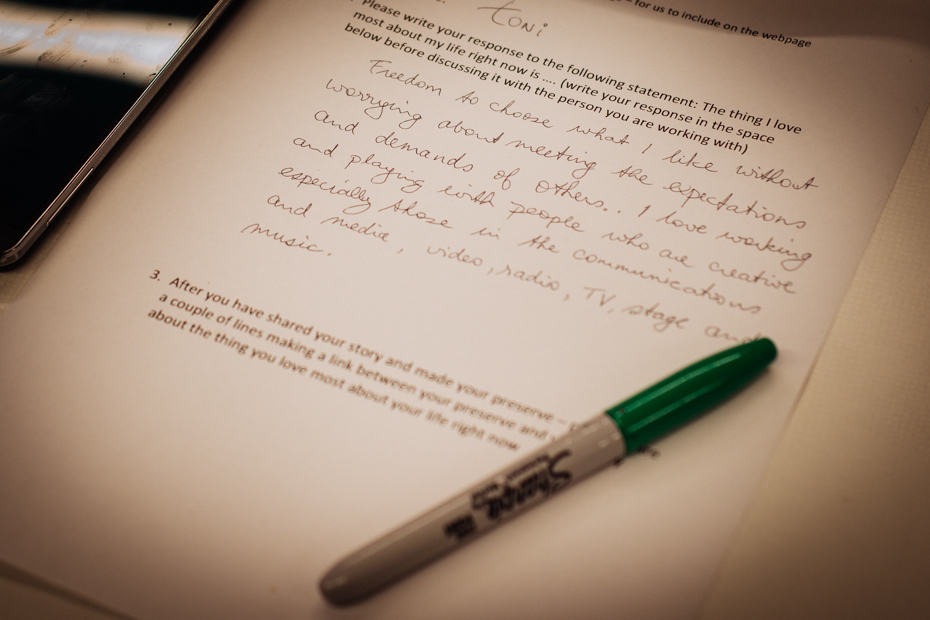 – for us to include on the webpage
toni
Please write your response to the following statement: The thing I love
most about my life right now is .... (write your response in the space
below before discussing it with the person you are working with)
Freedom to choose what I like without
worrying about meeting the expectations
and demands of others.. I love working
and playing with people who are creative
especially those in the communications
and media, video, radio, TV, stage and
music.
3. After you have shared your story and made your preserve –
a couple of lines making a link between your preserve and
about the thing you love most about your life right now
Sharpie